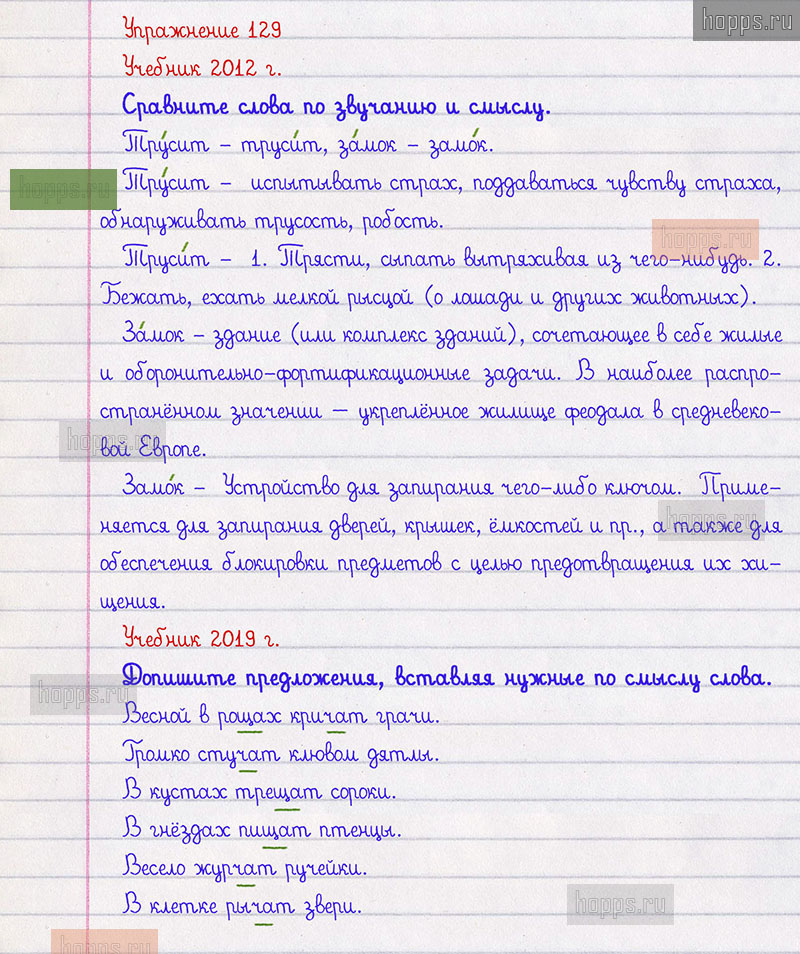 hopps.ru
Упражнение 129
Учебник 2012 г.
Сравните слова по звучанию и смыслу.
Тру́сит – труси́т, за́мок – замо́к.
hopps.ru
Тру́сит – испытывать страх, поддаваться чувству страха,
обнаруживать трусость, робость.
hopps.ru
Труси́т – 1. Трясти, сыпать вытряхивая из чего-нибудь. 2.
Бежать, ехать мелкой рысцой (о лошади и других животных).
За́мок – здание (или комплекс зданий), сочетающее в себе жилые
и оборонительно-фортификационные задачи. В наиболее распро-
странённом значении — укреплённое жилище феодала в средневеко-
hopps.ru
вой Европе.
Замо́к – Устройство для запирания чего-либо ключом. Приме-
hopps.ru
няется для запирания дверей, крышек, ёмкостей и пр., а также для
обеспечения блокировки предметов с целью предотвращения их хи-
щения.
Учебник 2019 г.
Допишите предложения, вставляя нужные по смыслу слова.
hopps.ru
Весной в рощах кричат грачи.
Громко стучат клювом дятлы.
В кустах трещат сороки.
В гнёздах пищат птенцы.
Весело журчат ручейки.
В клетке рычат звери.
hopps.ru
hopps.ru